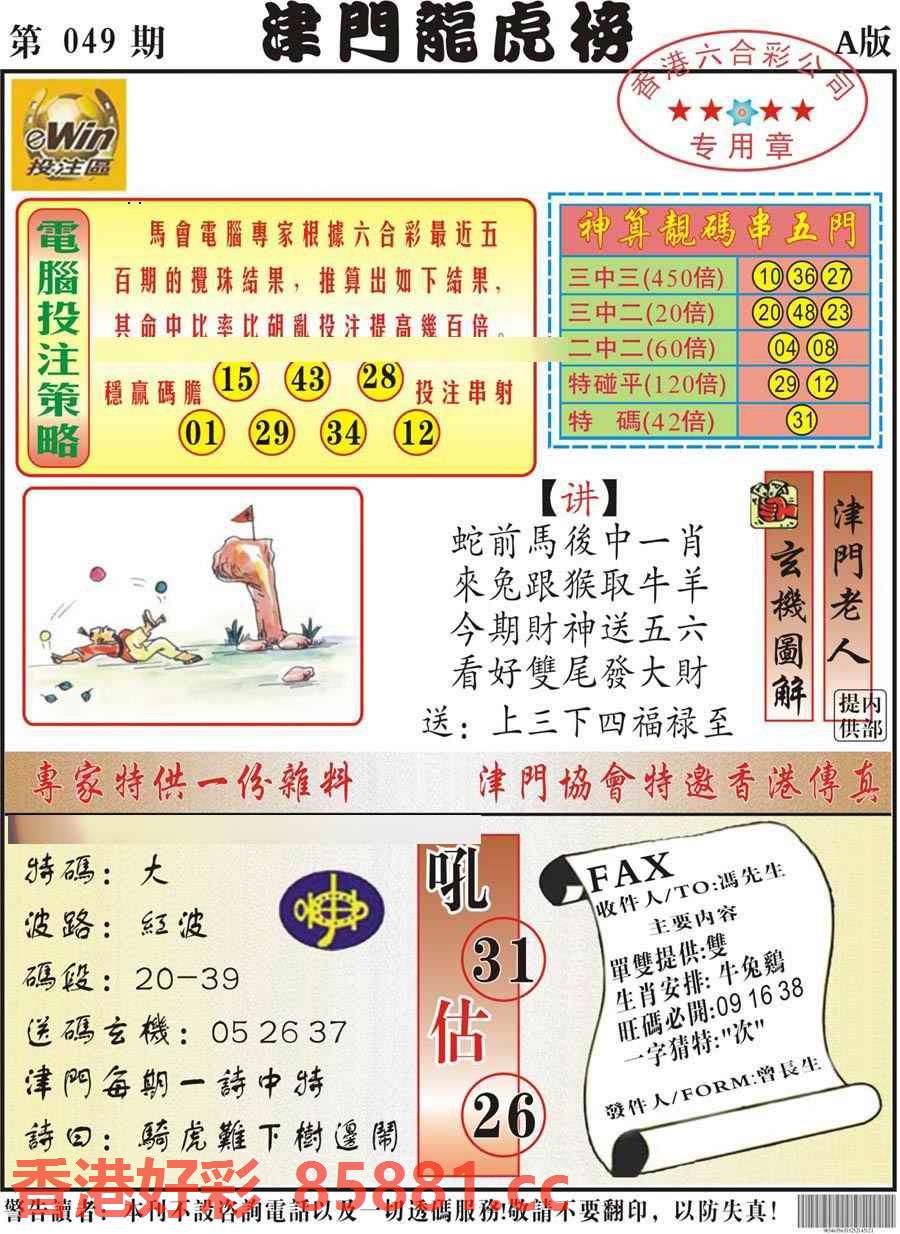 第 049 期
津門龍虎榜
A版
香港六合彩公司
专用章
eWin
投注區
電腦投注策略
馬會電腦專家根據六合彩最近五
百期的攪珠結果，推算出如下結果，
其命中比率比胡亂投注提高幾百倍。
穩贏碼膽 15 43 28 投注串射
01 29 34 12
神算靚碼串五門
三中三(450倍) 10 36 27
三中二(20倍) 20 48 23
二中二(60倍) 04 08
特碰平(120倍) 29 12
特 碼(42倍) 31
【讲】
蛇前馬後中一肖
來兔跟猴取牛羊
今期財神送五六
看好雙尾發大財
送：上三下四福禄至
玄機圖解
津門老人
内部
提供
專家特供一份雜料
津門協會特邀香港傳真
特碼：大
波路：紅波
碼段：20-39
送碼玄機：05 26 37
津門每期一詩中特
詩曰：騎虎難下樹邊鬧
吼
31
估
26
FAX
收件人/TO:馮先生
主要内容
單雙提供:雙
生肖安排:牛兔鷄
旺碼必開:09 16 38
一字猜特:"次"
發件人/FORM:曾長生
香港好彩 85881.cc
警告讀者：本刊不設咨詢電話以及一切透碼服務!敬請不要翻印，以防失真!